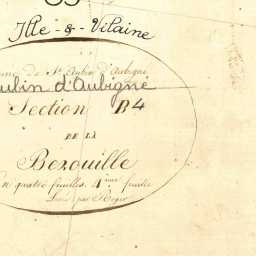 Ille-&-Vilaine
de St Aubin d'Aubigné
ubin d'Aubigné
Section B4
DE LA
Bezouille
n quatre feuilles 4ème feuille
par